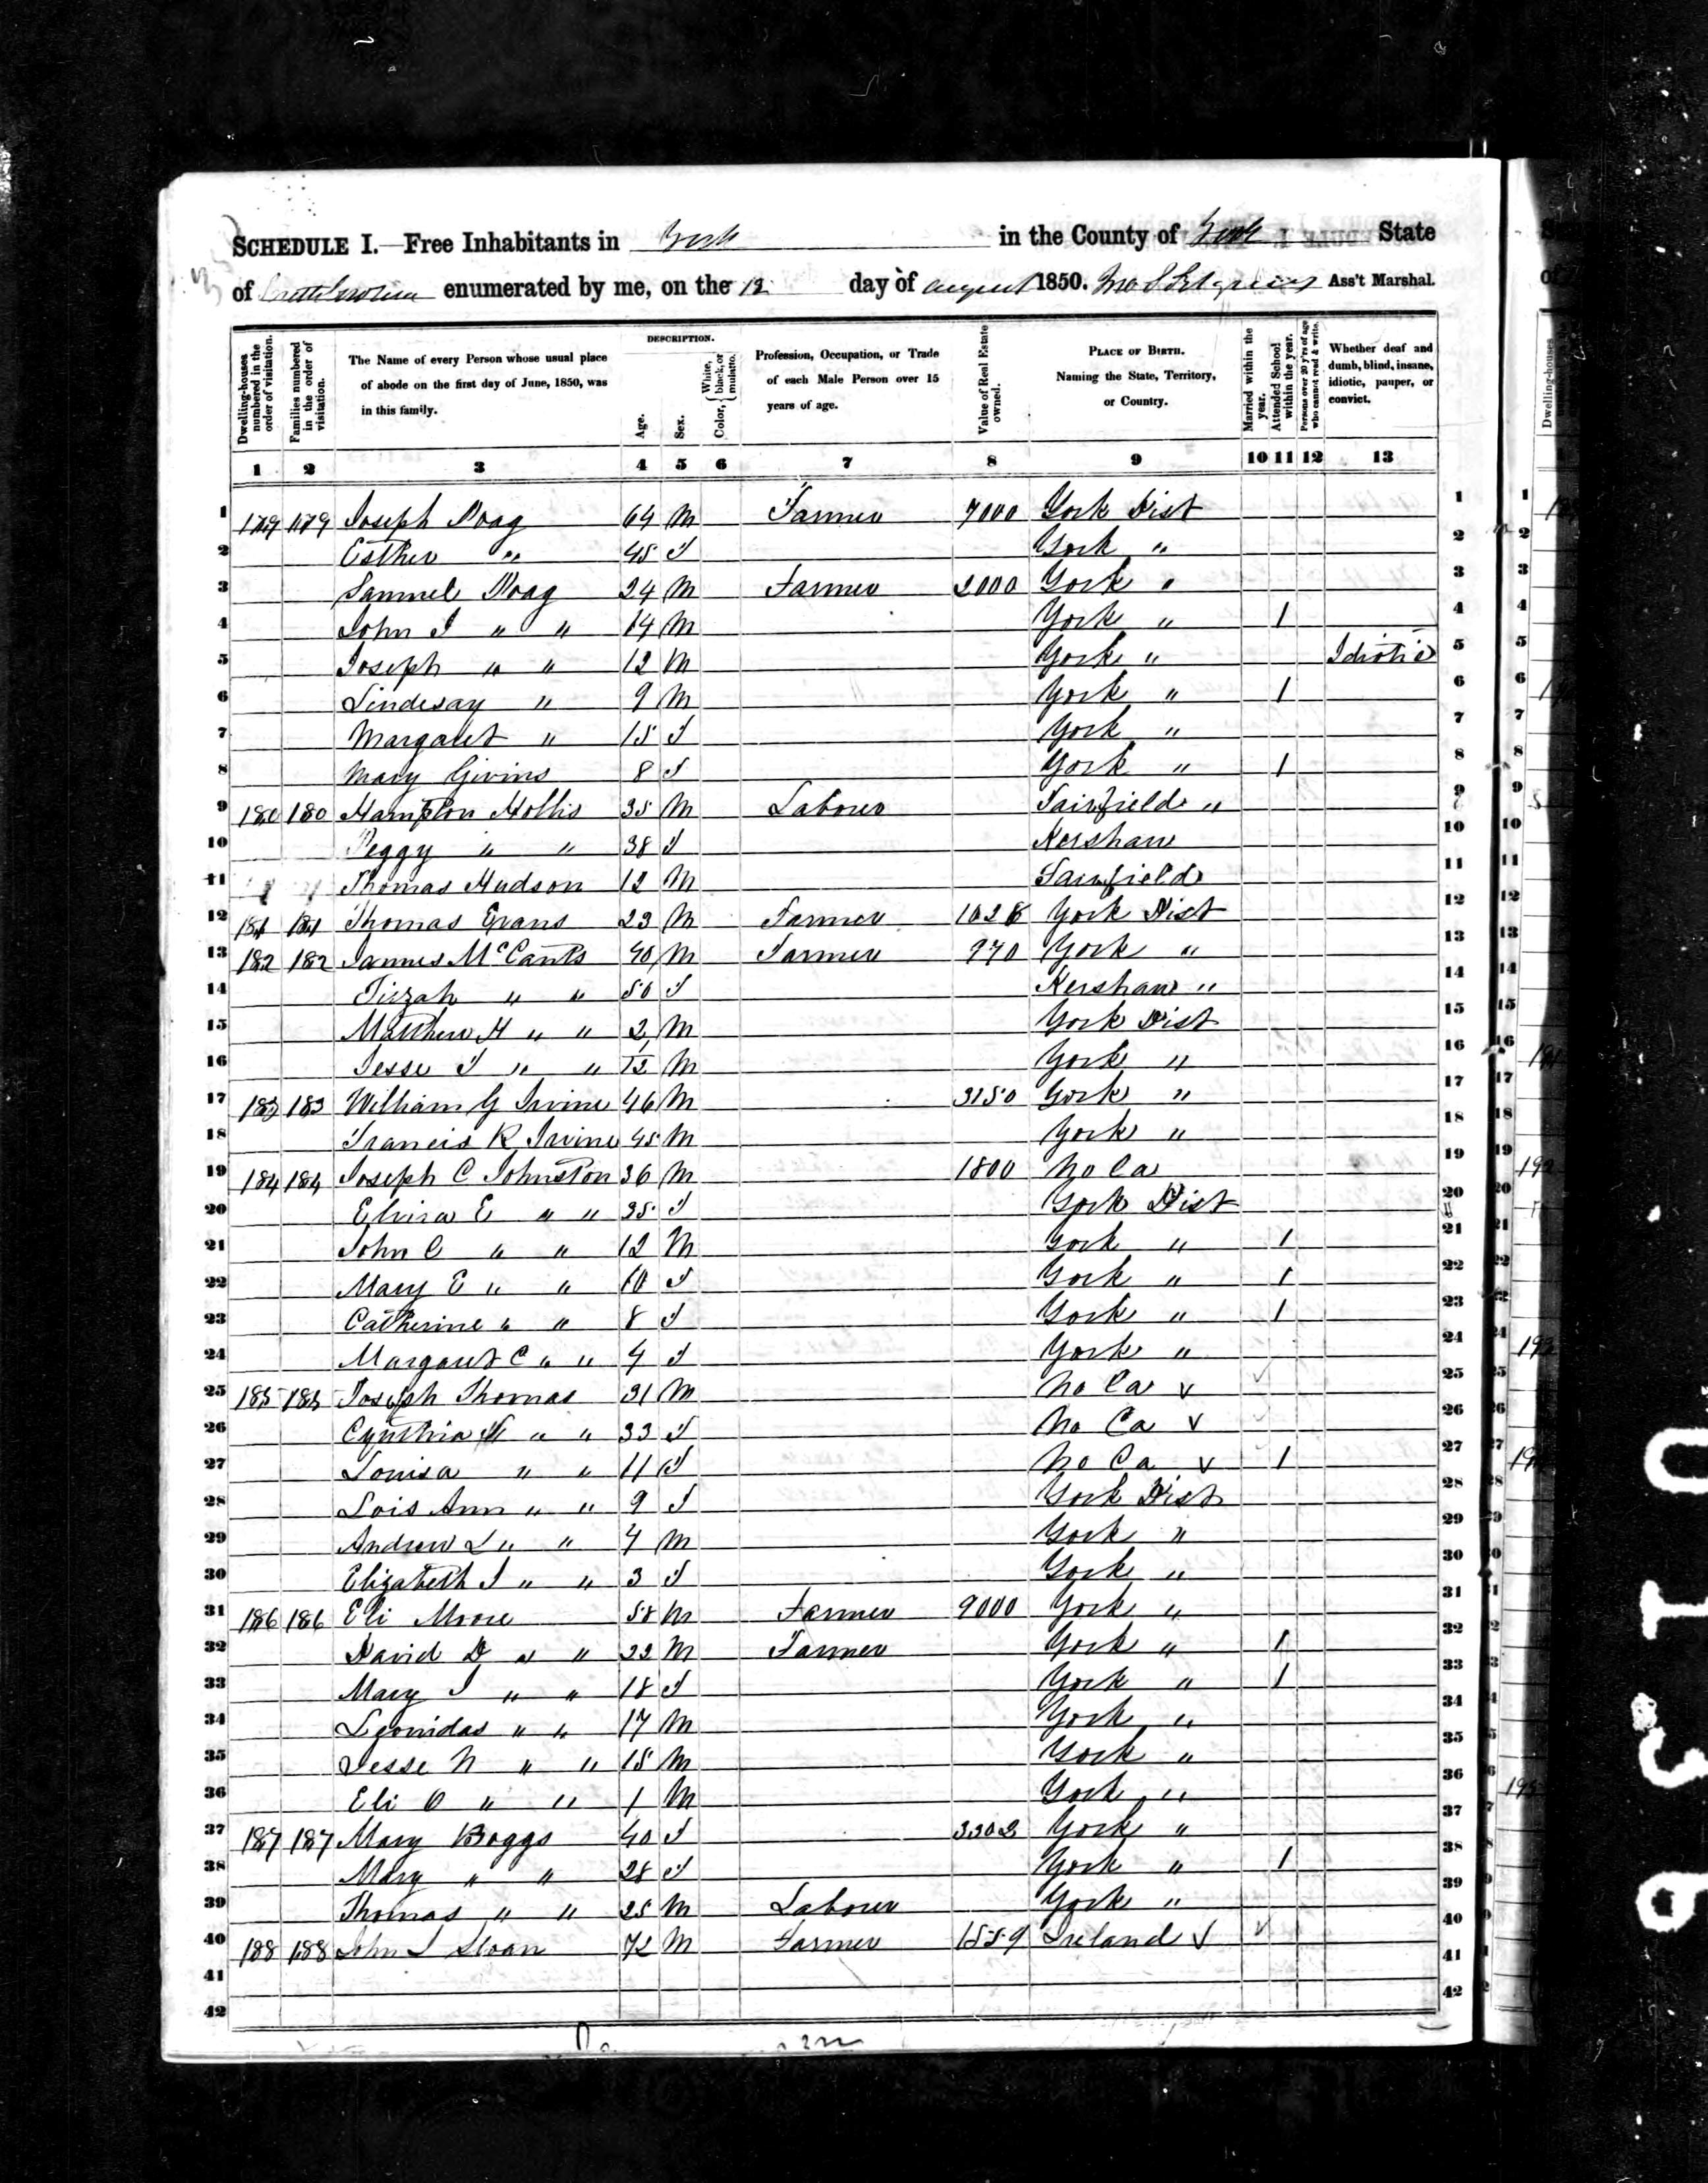 SCHEDULE I.—Free Inhabitants in York in the County of York State
of South Carolina enumerated by me, on the 12 day of august 1850. Ass't Marshal.
Dwelling-houses numbered in the order of visitation.
Families numbered in the order of visitation.
The Name of every Person whose usual place of abode on the first day of June, 1850, was in this family.
DESCRIPTION.
Age.
Sex.
Color, { White, black, or mulatto.
Profession, Occupation, or Trade of each Male Person over 15 years of age.
Value of Real Estate owned.
PLACE OF BIRTH. Naming the State, Territory, or Country.
Married within the year.
Attended School within the year.
Persons over 20 y'rs of age who cannot read & write.
Whether deaf and dumb, blind, insane, idiotic, pauper, or convict.
1 2 3 4 5 6 7 8 9 10 11 12 13
1 179 179 Joseph Poag 64 M Farmer 7000 York Dist 1
2 Esther " 45 f York " 2
3 Samuel Poag 24 M Farmer 2000 York " 3
4 John J " " 14 M York " 1 4
5 Joseph " " 12 M York " Idiotic 5
6 Lindesay " 9 M York " 1 6
7 Margaret " 15 f York " 7
8 Mary Givins 8 f York " 1 8
9 180 180 Hampton Hollis 35 M Labour Fairfield " 9
10 Peggy " " 38 f Kershaw 10
11 Thomas Hudson 12 M Fairfield 11
12 181 181 Thomas Evans 23 M Farmer York Dist 12
13 182 182 James McCants 40 M Farmer 970 York " 13
14 Tirzah " " 50 f Kershaw " 14
15 Matthew H " " 2 M York Dist 15
16 Jesse F " " M York " 16
17 183 183 William G Irvine 46 M 3150 York " 17
18 Francis R Irvine 45 M York " 18
19 184 184 Joseph C Johnston 36 M 1800 No Ca 19
20 Elvira E " " 35 f York Dist 20
21 John C " " 12 M York " 1 21
22 Mary E " " 10 f York " 1 22
23 Catherine " " 8 f York " 1 23
24 Margaret C " " 4 f York " 24
25 185 185 Joseph Thomas 31 M No Ca v 25
26 Cynthia " " 33 f No Ca v 26
27 Louisa " " 11 f No Ca v 1 27
28 Lois Ann " " 9 f York Dist 28
29 Andrew L " " 4 M York " 29
30 Elizabeth J " " 3 f York " 30
31 186 186 Eli Moore 58 M Farmer 9000 York " 31
32 David D " " 22 M Farmer York " 1 32
33 Mary J " " 18 f York " 1 33
34 Leonidas " " 17 M York " 34
35 Jesse N " " 15 M York " 35
36 Eli O " " 1 M York " 36
37 187 187 Mary Boggs 40 f 3302 York " 37
38 Mary " " 28 f York " 1 38
39 Thomas " " 25 M Labour York " 39
40 188 188 John S Sloan 72 M Farmer 1559 Ireland v 40
41 41
42 42